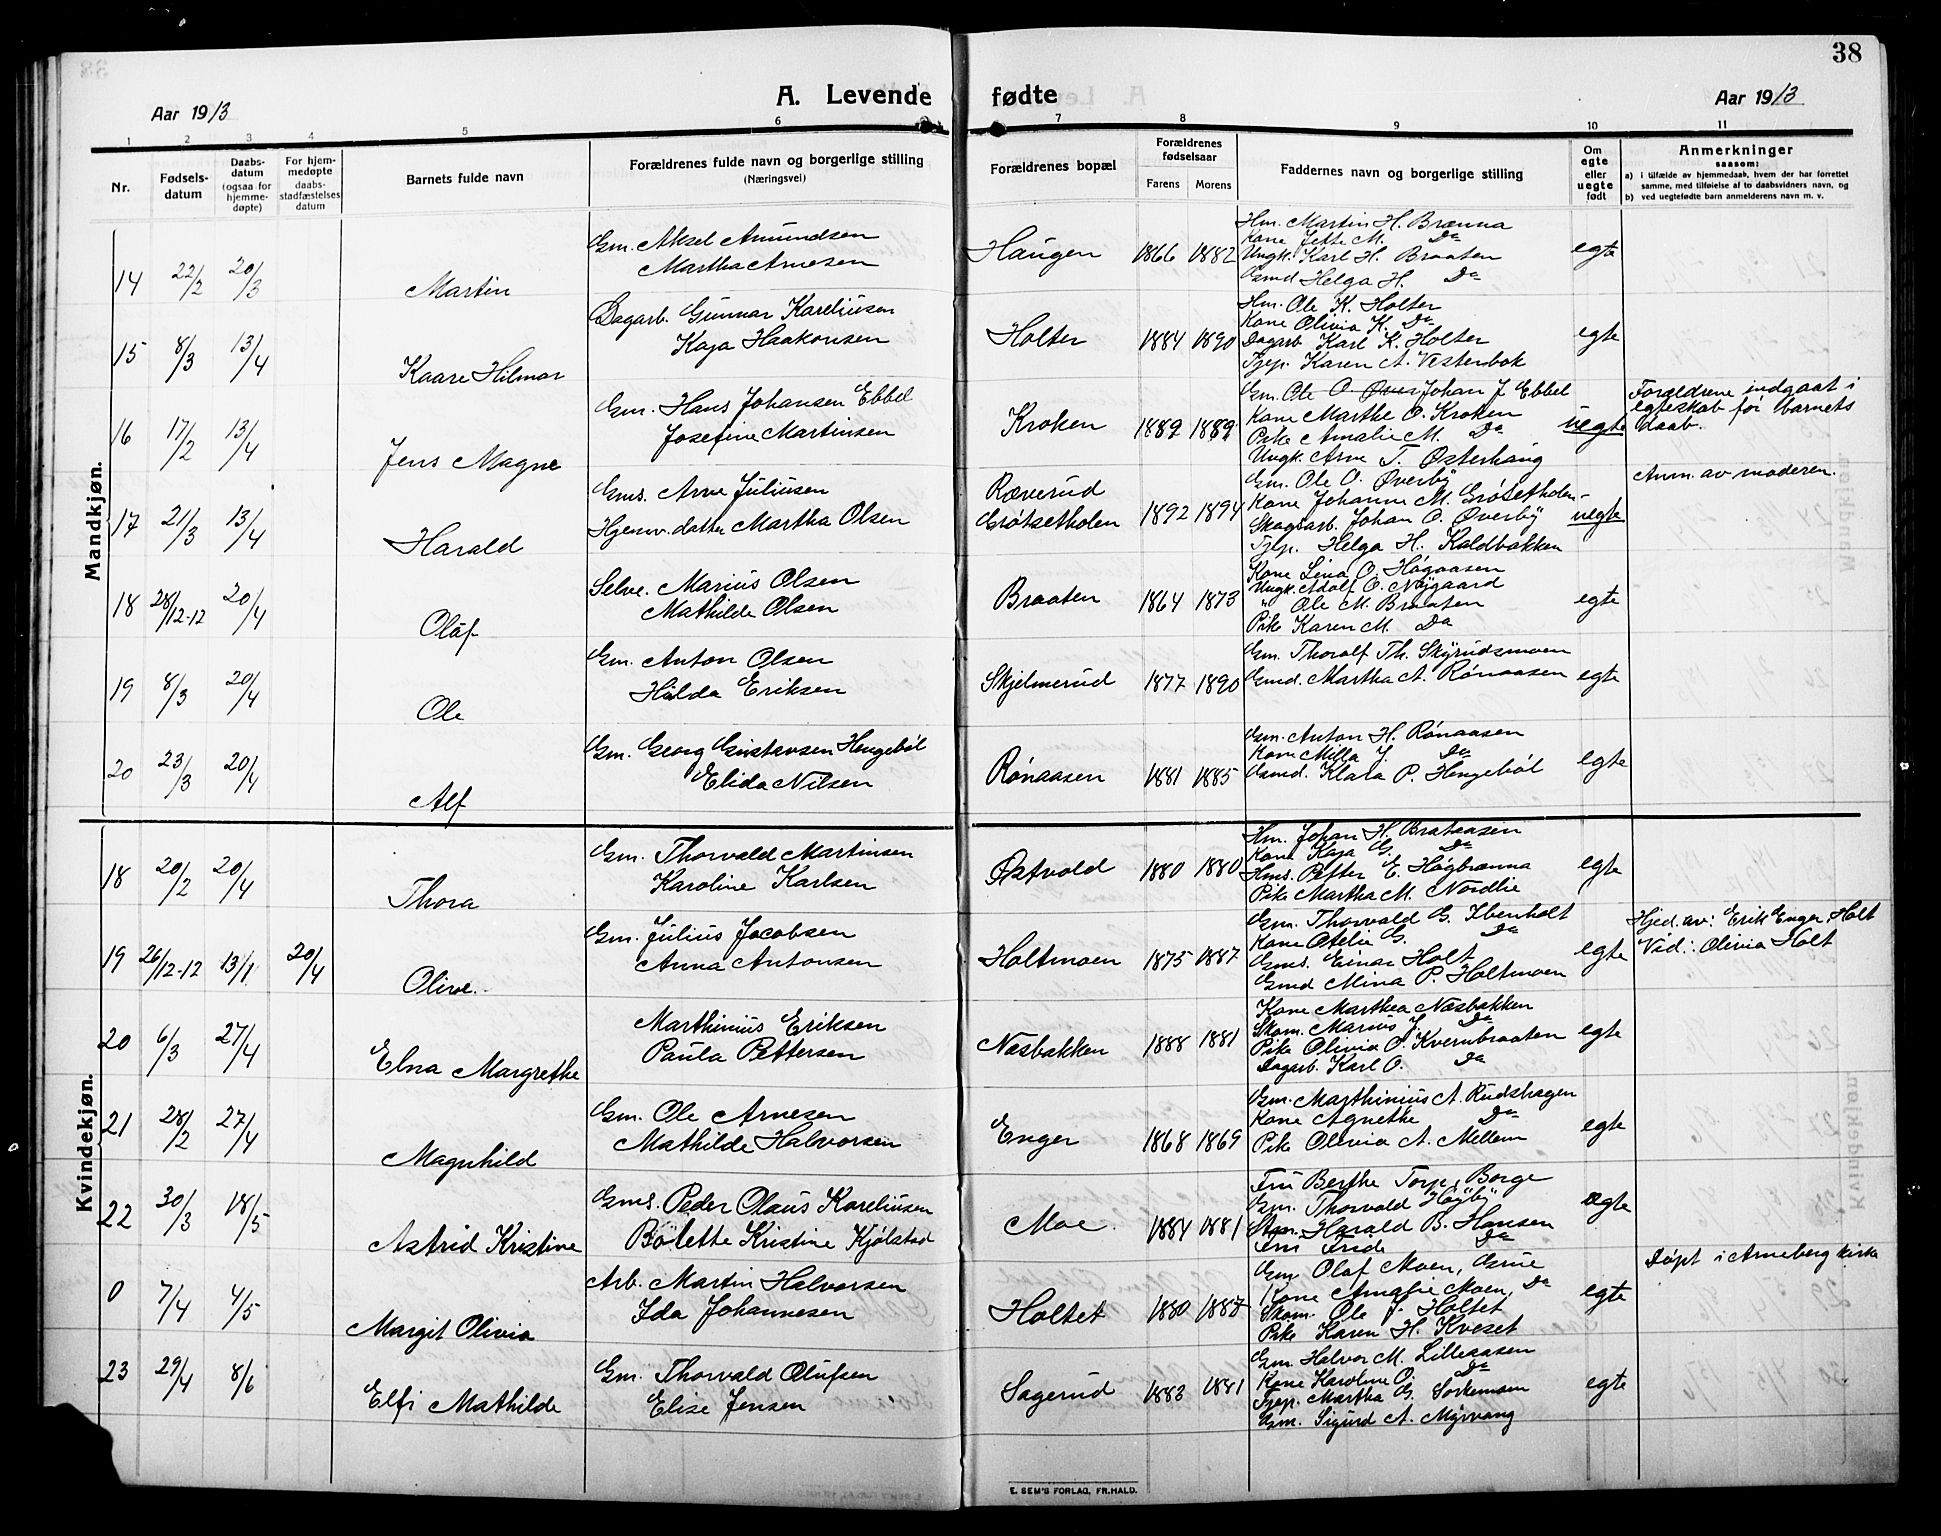 38
A. Levende fødte
Aar 1913
Aar 1913
1 2 3 4 5 6 7 8 9 10 11
Nr.
Fødsels-
datum
Daabs-
datum
(ogsaa for
hjemme-
døpte)
For hjem-
medøpte
daabs-
stadfæstelses
datum
Barnets fulde navn
Forældrenes fulde navn og borgerlige stilling
(Næringsvei)
Forældrenes bopæl
Forældrenes
fødselsaar
Farens Morens
Faddernes navn og borgerlige stilling
Om
egte
eller
uegte
født
Anmerkninger
saasom:
a) i tilfælde av hjemmedaab, hvem der har forrettet
samme, med tilføielse av to daabsvidners navn, og
b) ved uegtefødte barn anmelderens navn m. v.
Mandkjøn.
14 22/2 20/3 Martin
Gm. Aksel Amundsen
Martha Arnesen
Haugen 1866 1882
Hm. Martin H. Brænna
Kone Jette M. Do
Ungk. Karl H. Braaten
Gsmd Helga H. Do
egte
15 8/3 13/4 Kaare Hilmar
Dagarb. Gunnar Kareliusen
Kaja Haakonsen
Holter 1884 1890
Hm. Ole K. Holter
Kone Olivia K. Do
Dagarb Karl K. Holter
Tjep. Karen A. Vestenbok
egte
16 17/2 13/4 Jens Magne
Gm. Hans Johansen Ebbel
Josefine Martinsen
Kroken 1889 1889
Gm. Ole O. Over Johan J Ebbel
Kone Marthe O. Kroken
Pike Amalie M. Do
Ungk. Arve T. Østerhaug
uegte
Forældrene indgaat i
egteskab før barnets
daab.
17 21/3 13/4 Harald
Gms. Arve Juliusen
Hjemv. datter Martha Olsen
Ræverud
Grøtsetholen 1892 1894
Gm. Ole O. Øverby
Kone Johanne M. Grøtsetholen
Skogsarb. Johan O. Øverby
Tjep. Helga H. Kaldbakken
uegte
Anm. av moderen.
18 28/12-12 20/4 Olaf
Selve. Marius Olsen
Mathilde Olsen
Braaten 1864 1873
Kone Lina O. Høgaasen
Ungk. Adolf O. Nygaard
" Ole M. Braaten
Pike Karen M. Do
egte
19 8/3 20/4 Ole
Gm. Anton Olsen
Hilda Eriksen
Skjelmerud 1877 1890
Gm. Thoralf Th. Skyrudsmoen
Gmd. Martha A. Rønaasen
egte
20 23/3 20/4 Alf
Gm. Georg Gustavsen Hengebøl
Elida Nilsen
Rønaasen 1881 1885
Gm. Anton H. Rønaasen
Kone Milla J. Do
Gsmd. Klara P. Hengebøl
egte
Kvindekjøn.
18 20/2 20/4 Thora
Gm. Thorvald Martinsen
Karoline Karlsen
Østvold 1880 1880
Hm. Johan H. Brataasen
Kone Kaja G. Do
Hms. Petter E. Høgbrænna
Pike Martha M. Nordlie
egte
19 26/12-12 13/1 20/4 Olive
Gm. Julius Jacobsen
Anna Antonsen
Holtmoen 1875 1887
Gm. Thorvald G. Ibenholt
Kone Otelie G. Do
Gms. Einar Holt
Gmd Mina P. Holtmoen
egte
Hjed. av: Erik Enger, Holt
Vid: Olivia Holt
20 6/3 27/4 Elna Margrethe
Marthinius Eriksen
Paula Pettersen
Næsbakken 1888 1881
Kone Marthea Næsbakken
Skom. Marius J. Do
Pike Olivia O. Kvernbraaten
Dagarb. Karl O. Do
egte
21 28/2 27/4 Magnhild
Gm. Ole Arnesen
Mathilde Halvorsen
Enger 1868 1869
Gm. Marthinius A. Rudshagen
Kone Agnethe Do
Pike Olivia A. Mellem
egte
22 30/3 18/5 Astrid Kristine
Gms. Peder Olaus Kareliusen
Bolette Kristine Kjølstad
Moe. 1884 1881
Fru Berthe Torp, Borge
Gm. Thorvald Høyby
Harald B. Hansen
Fru Frida Do
egte
0 7/4 4/5 Margit Olivia
Arb. Martin Halvorsen
Ida Johannesen
Holtet 1880 1887
Gm. Olaf Moen, Grue
Kone Amalie Moen, Do
Skom. Ole J. Holtet
Pike Karen H. Kveset
egte
Døpt i Arneberg kirke
23 29/4 8/6 Elfi Mathilde
Gm. Thorvald Olufsen
Elise Jensen
Sagerud 1883 1881
Gm. Halvor M. Lilleaasen
Kone Karoline O. Do
Tjep. Martha G. Sorkemoen
Gm. Sigurd A. Myrvang
egte
E. SEM'S FORLAG, FR.HALD.